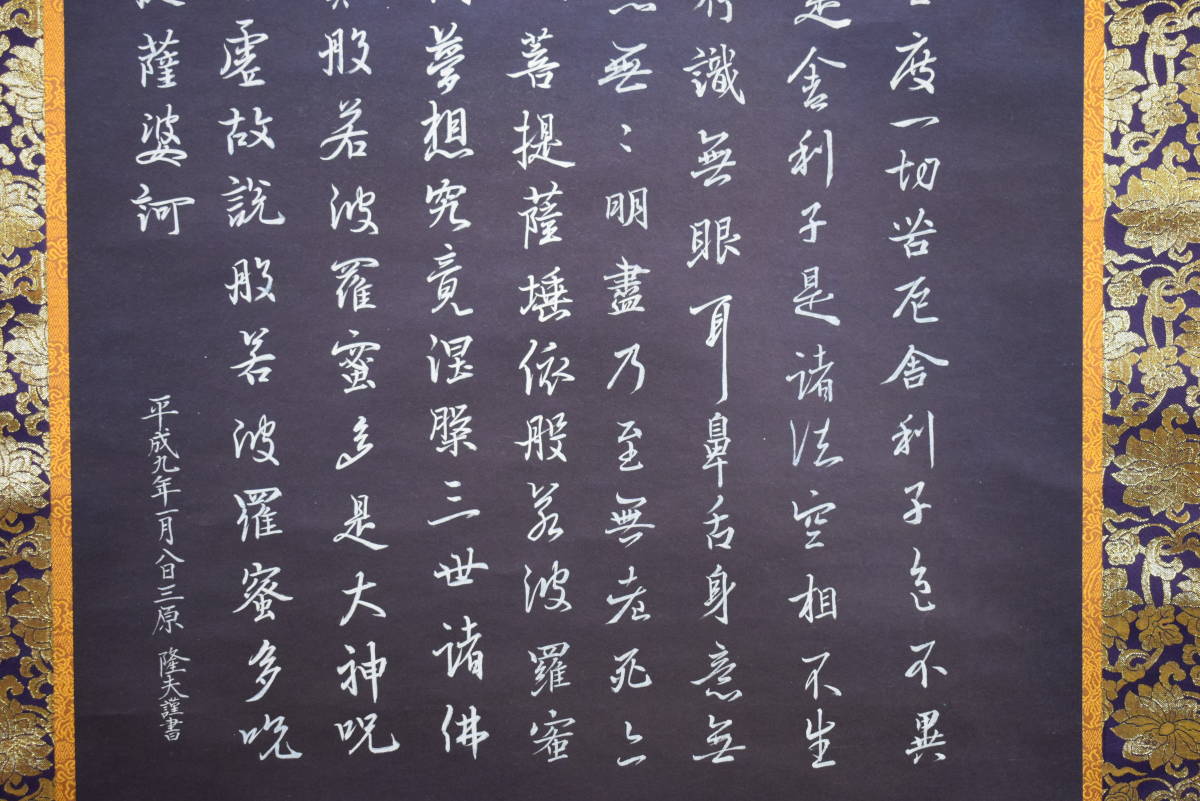 度一切苦厄舎利子色不異
是舎利子是諸法空相不生
行識無眼耳鼻舌身意無
無〻明盡乃至無老死亦
菩提薩埵依般若波羅蜜
夢想究竟涅槃三世諸佛
般若波羅蜜多是大神呪
虚故説般若波羅蜜多呪
薩婆訶
平成九年一月八日三原 隆夫謹書